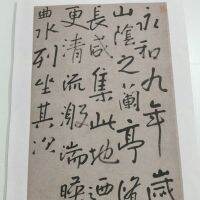 永和九年歲
山陰之蘭亭脩
長咸集此地
更清流激湍暎
曲水列坐其次